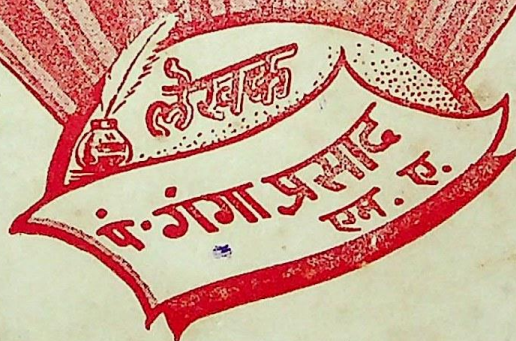 लेखक
पं. गंगा प्रसाद
एम. ए.